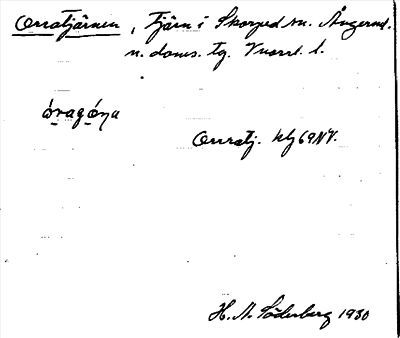 Orratjärnen, Tjärn i Skorped sn. Ångerml.
n. doms. tg. Vnorrl. l.
óragóṇa
Orratj. blg 69NV.
H. M. Söderberg 1930